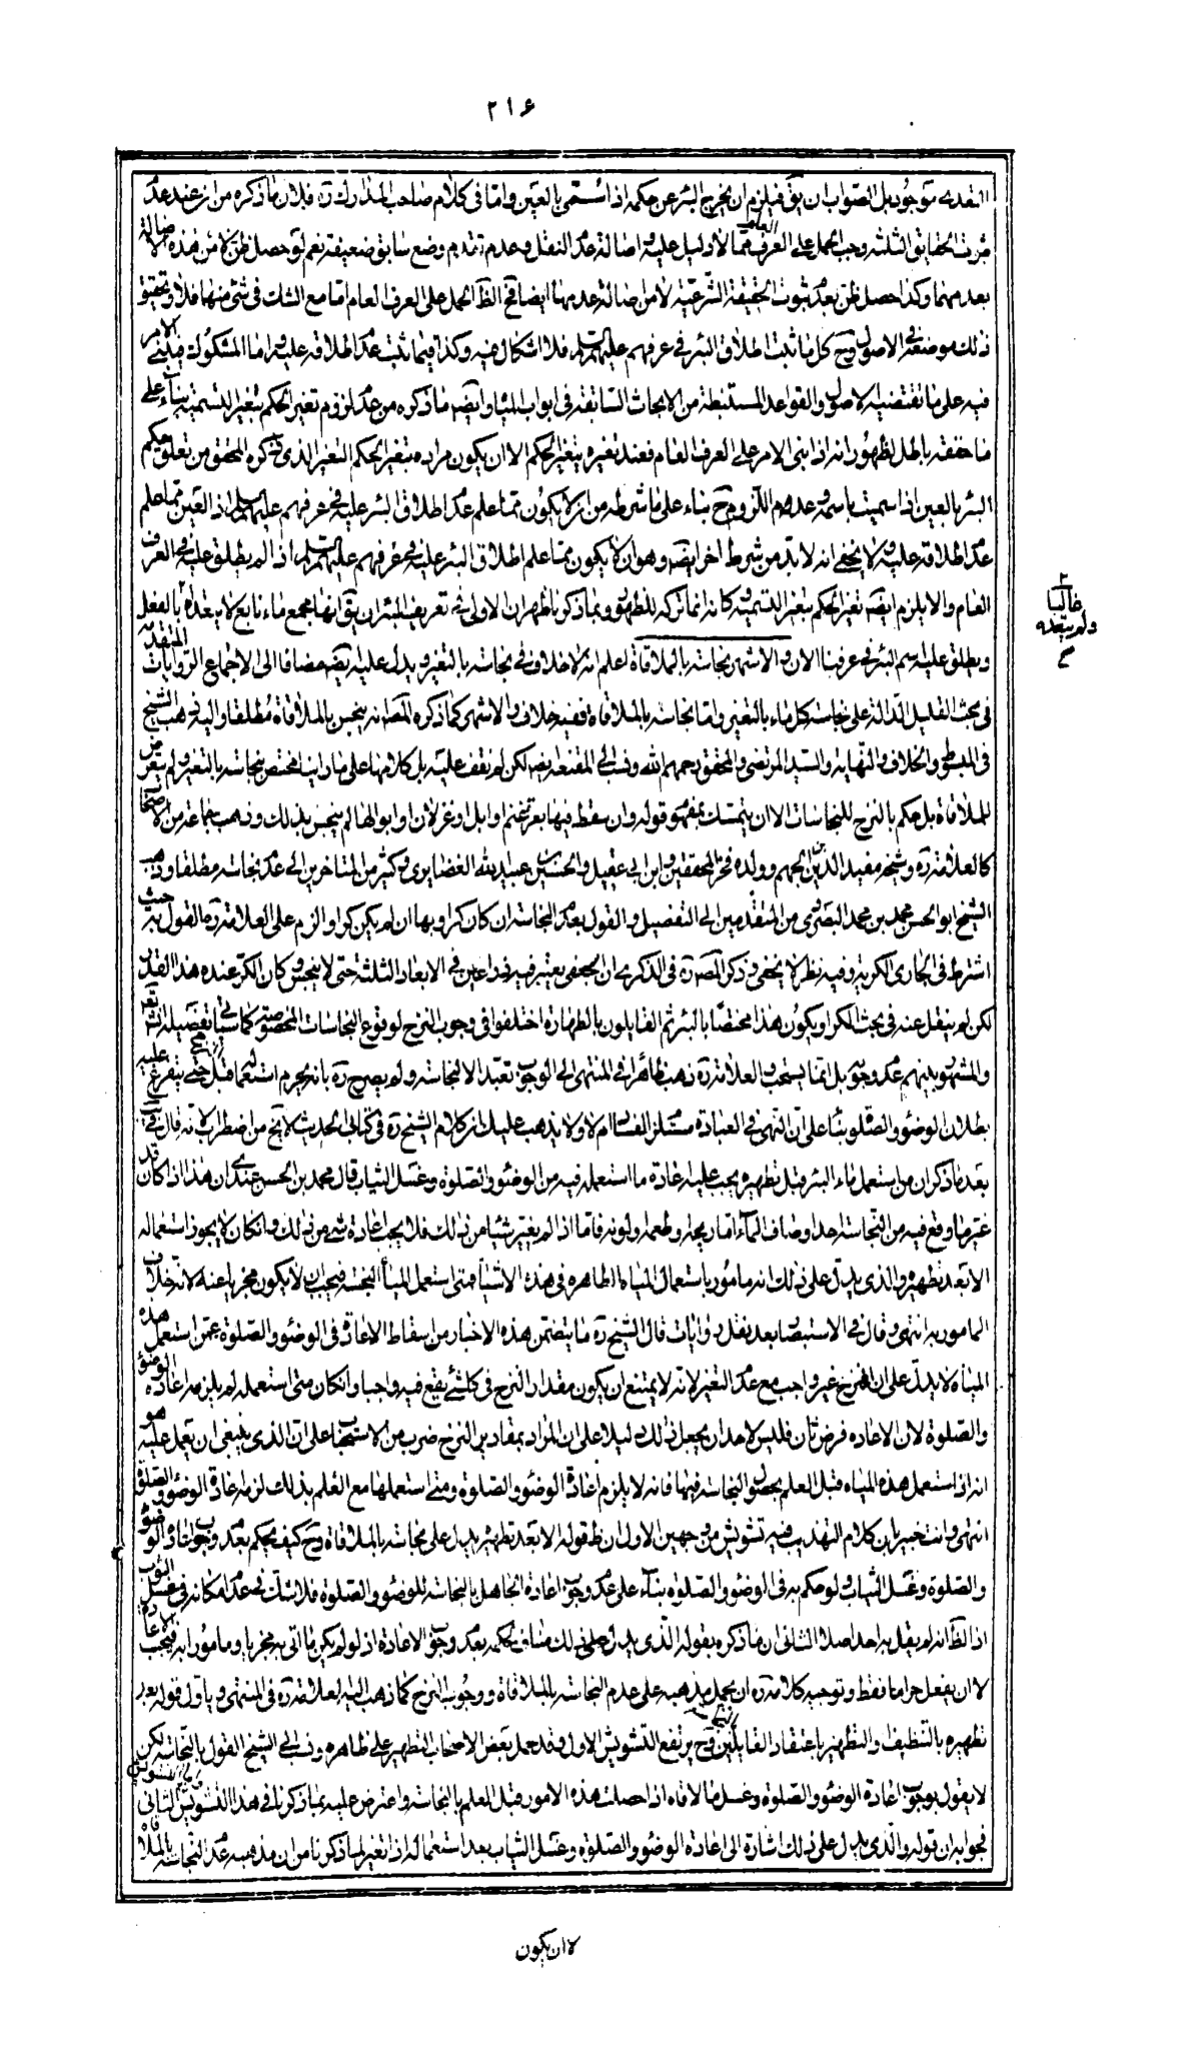 ٢١۶
التقدير موجود بل الصواب ان يق فيلزم ان يخرج البئر عن حكمه اذا سمى بالعين واما فى كلام صاحب المدارك ره فلان ما ذكره من ان عند عدم
ثبوت الحقايق الثلثة وجب الحمل على العرف العام مما لا دليل عليه و اصالة عدم النقل وعدم تقديم وضع سابق ضعيفة نعم لو حصل ظن لا من هذه الاصالة
بعدمهما وكذا حصل ظن بعدم ثبوت الحقيقة الشرعية لا من اصالة عدمها ايضا فح الظ الحمل على العرف العام اما مع الشك فى شئ منها فلا وتحقيق
ذلك موضعه فى الاصول وح كل ما ثبت اطلاق البئر فى عرفهم عليهم السلم فلا اشكال فيه وكذا فيما ثبت عدم اطلاقه عليه و اما المشكوك فيبنى الامر
فيه على ما تقتضيه الاصول والقواعد المستنبطة من الابحاث السابقة فى ابواب المياه وايضا ما ذكره من عدم لزوم تغير الحكم بتغير التسمية بناء على
ما حققه باطل لظهور انه اذا بنى الامر على العرف العام فعند تغيره يتغير الحكم الا ان يكون مراده بتغير الحكم التغير الذى ذكره المحقق من تعلق حكم
البئر بالعين اذا سميت باسمه وعدم اللزوم ح بناء على ما شرطه من ان لا يكون مما علم عدم اطلاق البئر عليه فى عرفهم عليهم السلم اذ العين مما علم
عدم اطلاقه عليه ولا يخفى انه لا بد من شرط اخر ايضا وهو ان لا يكون مما علم اطلاق البئر عليه فى عرفهم عليهم السلم اذا لم يطلق عليه فى العرف
العام والا يلزم ايضا تغير الحكم بتغير التسمية وكانه انما تركه للظهور وبما ذكرنا ظهر ان الاولى فى تعريف البئر ان يق انها مجمع ماء نابع لا يتعداه بالفعل
ويطلق عليه اسم البئر فى عرفنا الان والاشهر نجاسته بالملاقاة اعلم انه لا خلاف فى نجاسته بالتغير ويدل عليه ايضا مضافا الى الاجماع الروايات المتقدمة
فى بحث القليل الدالة على نجاسة كل ماء بالتغير واما نجاسته بالملاقاة ففيه خلاف والاشهر كما ذكره المص انه ينجس بالملاقاة مطلقا واليه ذهب الشيخ
فى المبسوط والخلاف والنهاية والسيد المرتضى والمحقق رحمهم الله ونسب الى المقنعة ايضا لكن لم نقف عليه بل كلامها على ما راينا مختص بنجاسته بالتغير ولم يتعرض
للملاقاة بل حكم بالنزح للنجاسات الا ان يتمسك بمفهوم قوله وان سقط فيها بعر غنم او ابل او غزلان وابوالها لم ينجس بذلك وذهب جماعة من الاصحاب
كالعلامة ره وشيخه مفيد الدين بن الجهم وولده فخر المحققين وابن ابى عقيل والحسين بن عبيد الله الغضايرى وكثير من المتاخرين الى عدم نجاسته مطلقا وذهب
الشيخ ابو الحسن محمد بن محمد البصروى من المتقدمين الى التفصيل والقول بعدم النجاسة ان كان كرا وبها ان لم يكن كرا والزم على العلامة ره القول به حيث
اشترط فى الجارى الكرية وفيه نظر لا يخفى وذكر المص ره فى الذكرى ان الجعفى يعتبر فيه ذراعين فى الابعاد الثلثة حتى لا ينجس وكان الكر عنده هذا القدر
لكن لم ينقل عنه فى بحث الكر او يكون هذا مختصا بالبئر ثم القايلون بالطهارة اختلفوا فى وجوب النزح لوقوع النجاسات المخصوصة كما سياتى تفصيله انش تع
والمشهور بينهم عدم وجوبه بل انما يستحب والعلامة ره ذهب ظاهرا فى المنتهى الى الوجوب تعبدا لا لنجاسته ولم يصرح ره بانه يحرم استعماله قبل النزح حتى يتفرع عليه
بطلان الوضوء والصلوة بناء على ان النهى فى العبادة مستلزم الفساد ام لا ولا يذهب عليك ان كلام الشيخ ره فى كتابى الحديث لا يخ من اضطراب لانه قال فى يب
بعد ما ذكر ان من استعمل ماء البئر قبل تطهيره يجب عليه اعادة ما استعمله فيه من الوضوء والصلوة وغسل الثياب قال محمد بن الحسن عندى ان هذا اذا كان قد
غير ما وقع فيه من النجاسة احد اوصاف الماء اما ريحه او طعمه او لونه فاما اذا لم يغير شيئا من ذلك فلا يجب اعادة شئ من ذلك وان كان لا يجوز استعماله
الا بعد تطهيره والذى يدل على ذلك انه مامور باستعمال المياه الطاهرة فى هذه الاشياء فمتى استعمل المياه النجسة فيجب ان لا يكون مجزيا عنه لانه خلاف
المامور به انتهى وقال فى الاستبصار بعد نقل روايات قال الشيخ ره ما يتضمن هذه الاخبار من اسقاط الاعادة فى الوضوء والصلوة عمن استعمل هذه
المياه لا يدل على ان النزح غير واجب مع عدم التغير لانه لا يمتنع ان يكون مقدار النزح فى كل شئ يقع فيه واجبا وان كان متى استعمله لم يلزمه اعادة الوضوء
والصلوة لان الاعادة فرض ثان فليس لاحد ان يجعل ذلك دليلا على ان المراد بمقادير النزح ضرب من الاستحباب على ان الذى ينبغى ان يعمل عليه هو
انه اذا استعمل هذه المياه قبل العلم بحصول النجاسة فيها فانه لا يلزم اعادة الوضوء والصلوة ومتى استعملها مع العلم بذلك لزمه اعادة الوضوء والصلوة
انتهى وانت خبير بان كلام التهذيب فيه تشويش من وجهين الاول ان ظ قوله الا بعد تطهيره يدل على نجاسته بالملاقاة وح كيف يحكم بعدم وجوب اعادة الوضوء
والصلوة وغسل الثياب ولو حكم به فى الوضوء والصلوة بناء على عدم وجوب اعادة الجاهل بالنجاسة للوضوء والصلوة فلا شك فى عدم امكانه فى غسل الثوب
اذ الظ انه لم يقل به احد اصلا الثانى ان ما ذكره بقوله الذى يدل على ذلك مناف لحكمه بعدم وجوب الاعادة اذ لو لم يكن ما اتى به مجزيا ومامورا به فيجب الاعادة
لا ان يفعل حراما فقط وتوجيه كلامه ره ان يحمل مذهبه على عدم النجاسة بالملاقاة ووجوب النزح كما ذهب اليه العلامة ره فى المنتهى وياول قوله بعد
تطهيره بالتنظيف والتطهير باعتقاد القايلين بالنجاسة وح يرتفع التشويش الاول وقد حمل بعض الاصحاب التطهير على ظاهره ونسب الى الشيخ القول بالنجاسة لكن
لا يقول بوجوب اعادة الوضوء والصلوة وغسل ما لاقاه اذا حصلت هذه الامور قبل العلم بالنجاسة واعترض عليه بما ذكرنا فى هذا التشويش واما التشويش الثانى
فجوابه ان قوله والذى يدل على ذلك اشارة الى اعادة الوضوء والصلوة وغسل الثياب بعد استعماله اذا تغير لما ذكرنا من ان مذهبه عدم النجاسة بالملاقاة
غالبا
ولم يتعده
لا ان يكون